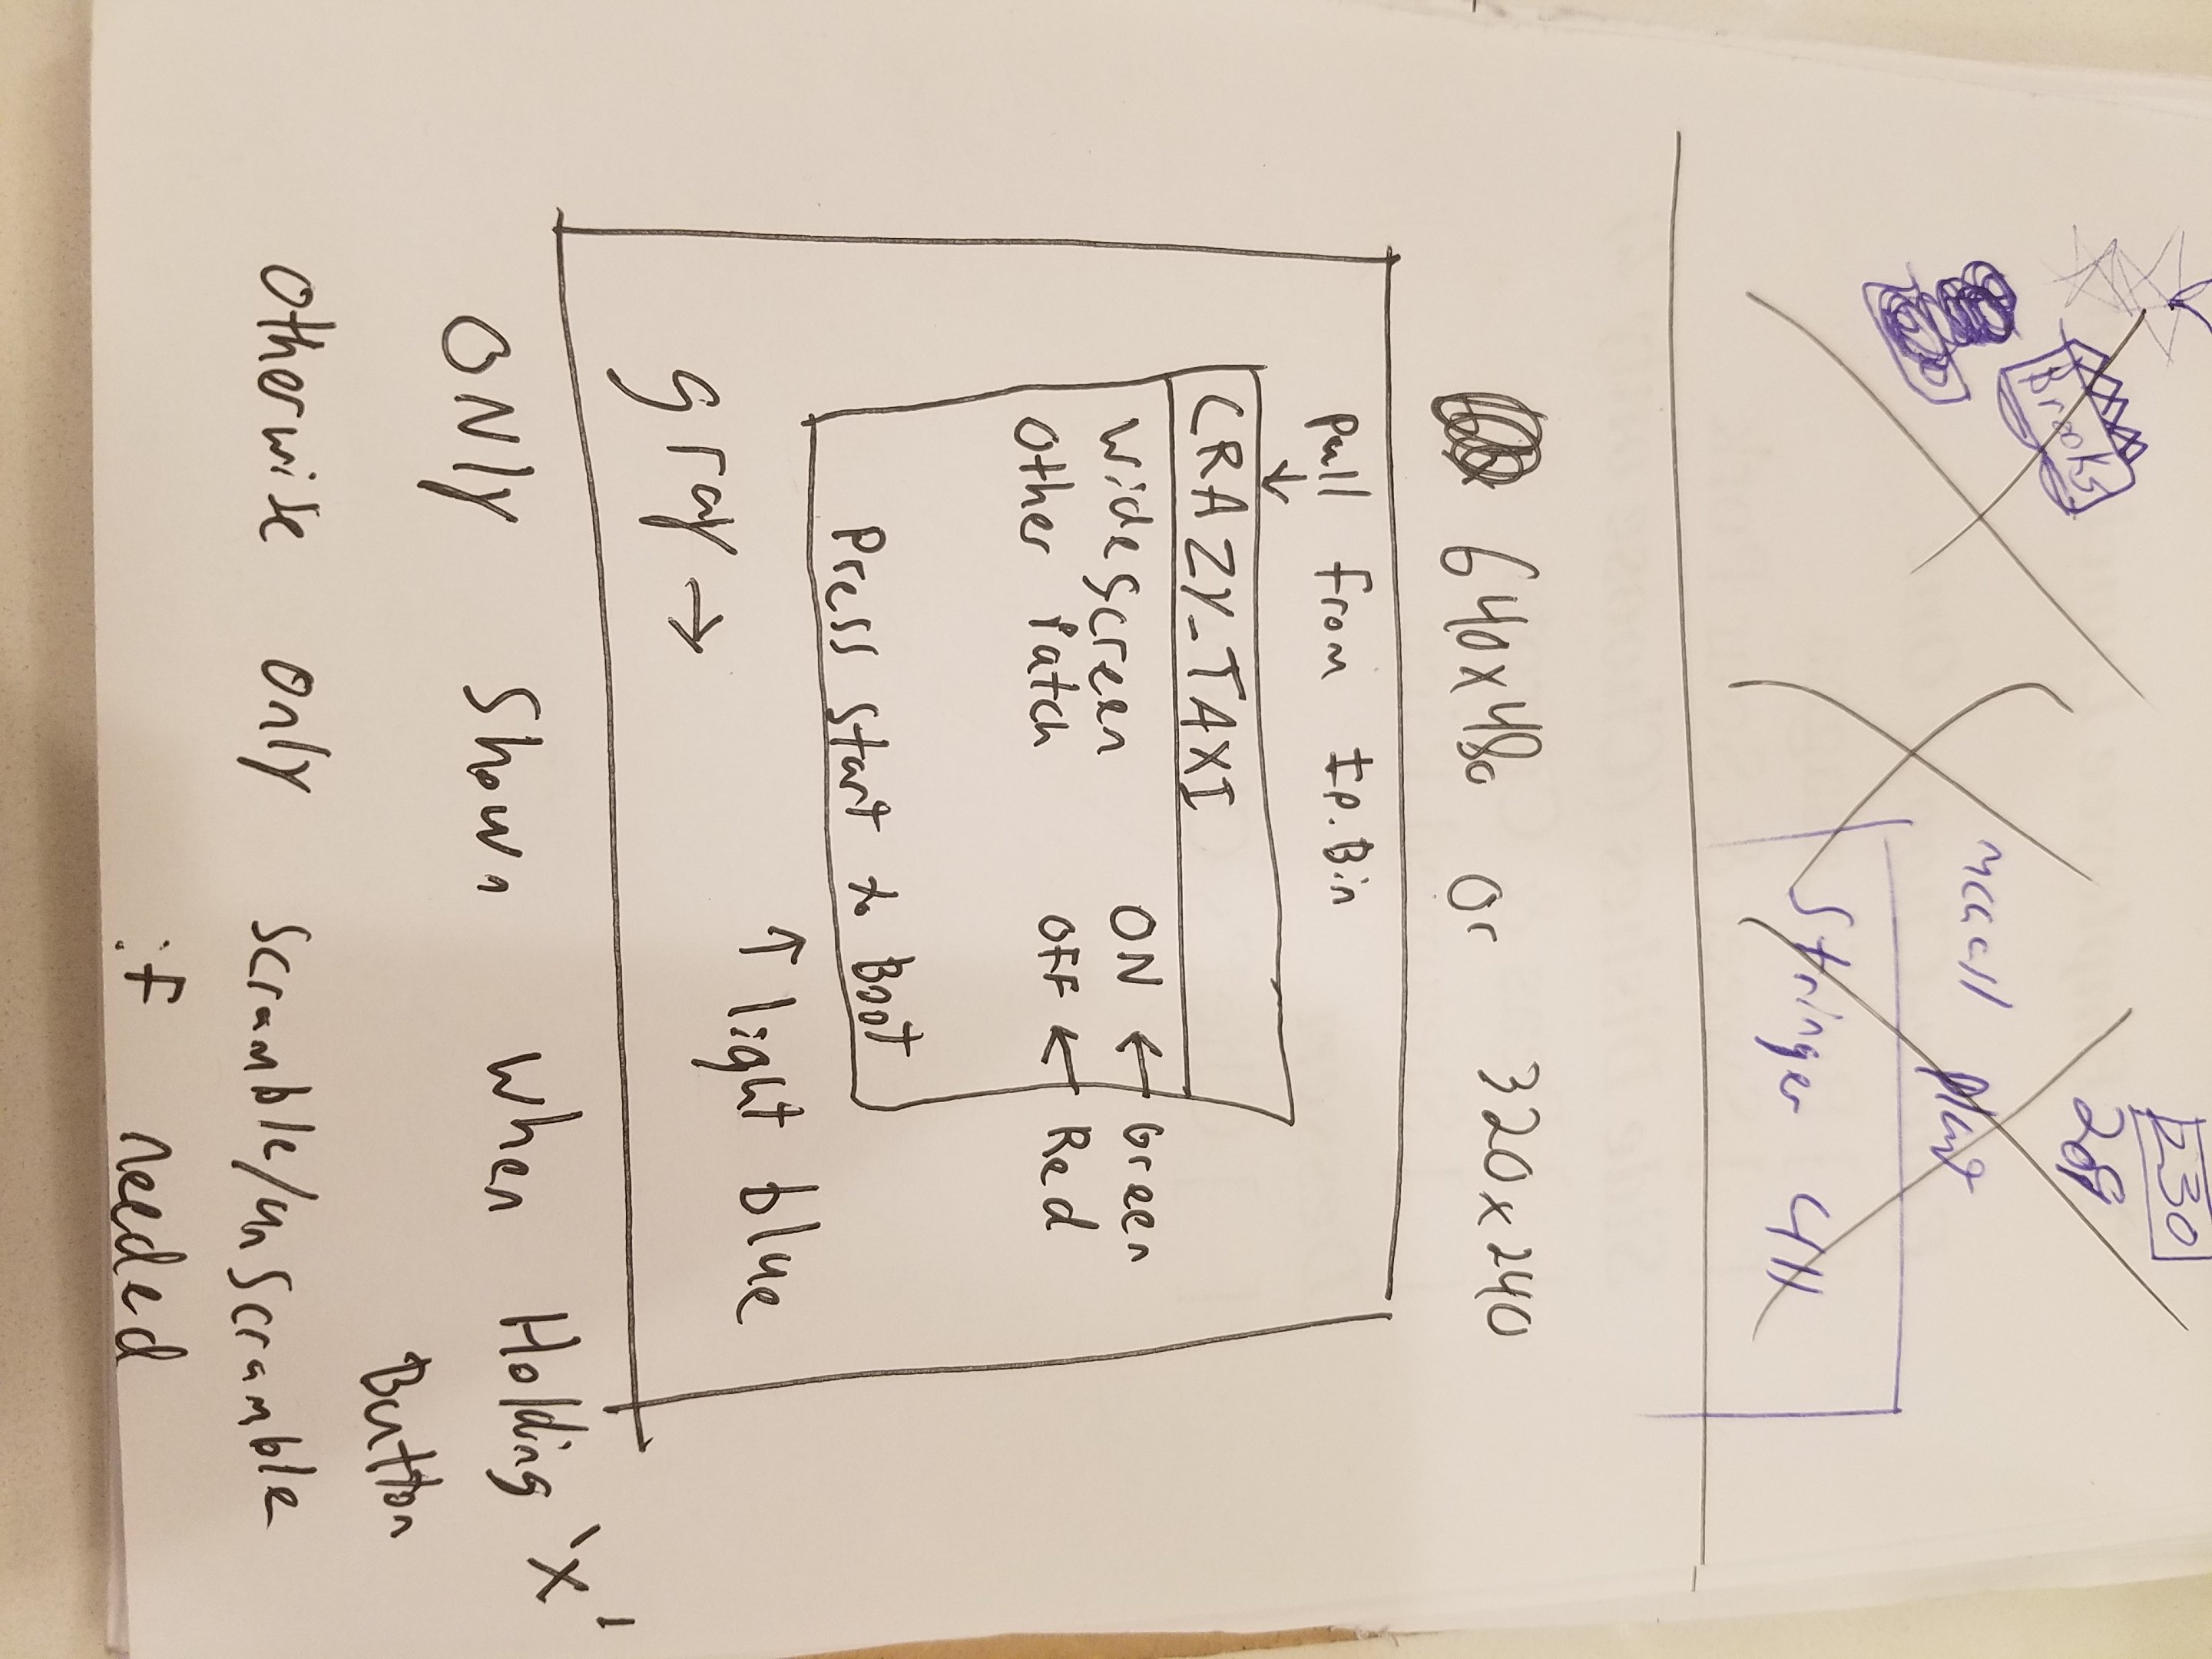 Brooks
230
208
Stringer
640x480 or 320x240
Pull from IP.Bin
CRAZY_TAXI
Widescreen ON ← Green
Other Patch OFF ← Red
Press Start to Boot
↑ light blue
Gray →
ONly Shown When Holding 'X'
Button
Otherwise only scramble/unscramble
if needed